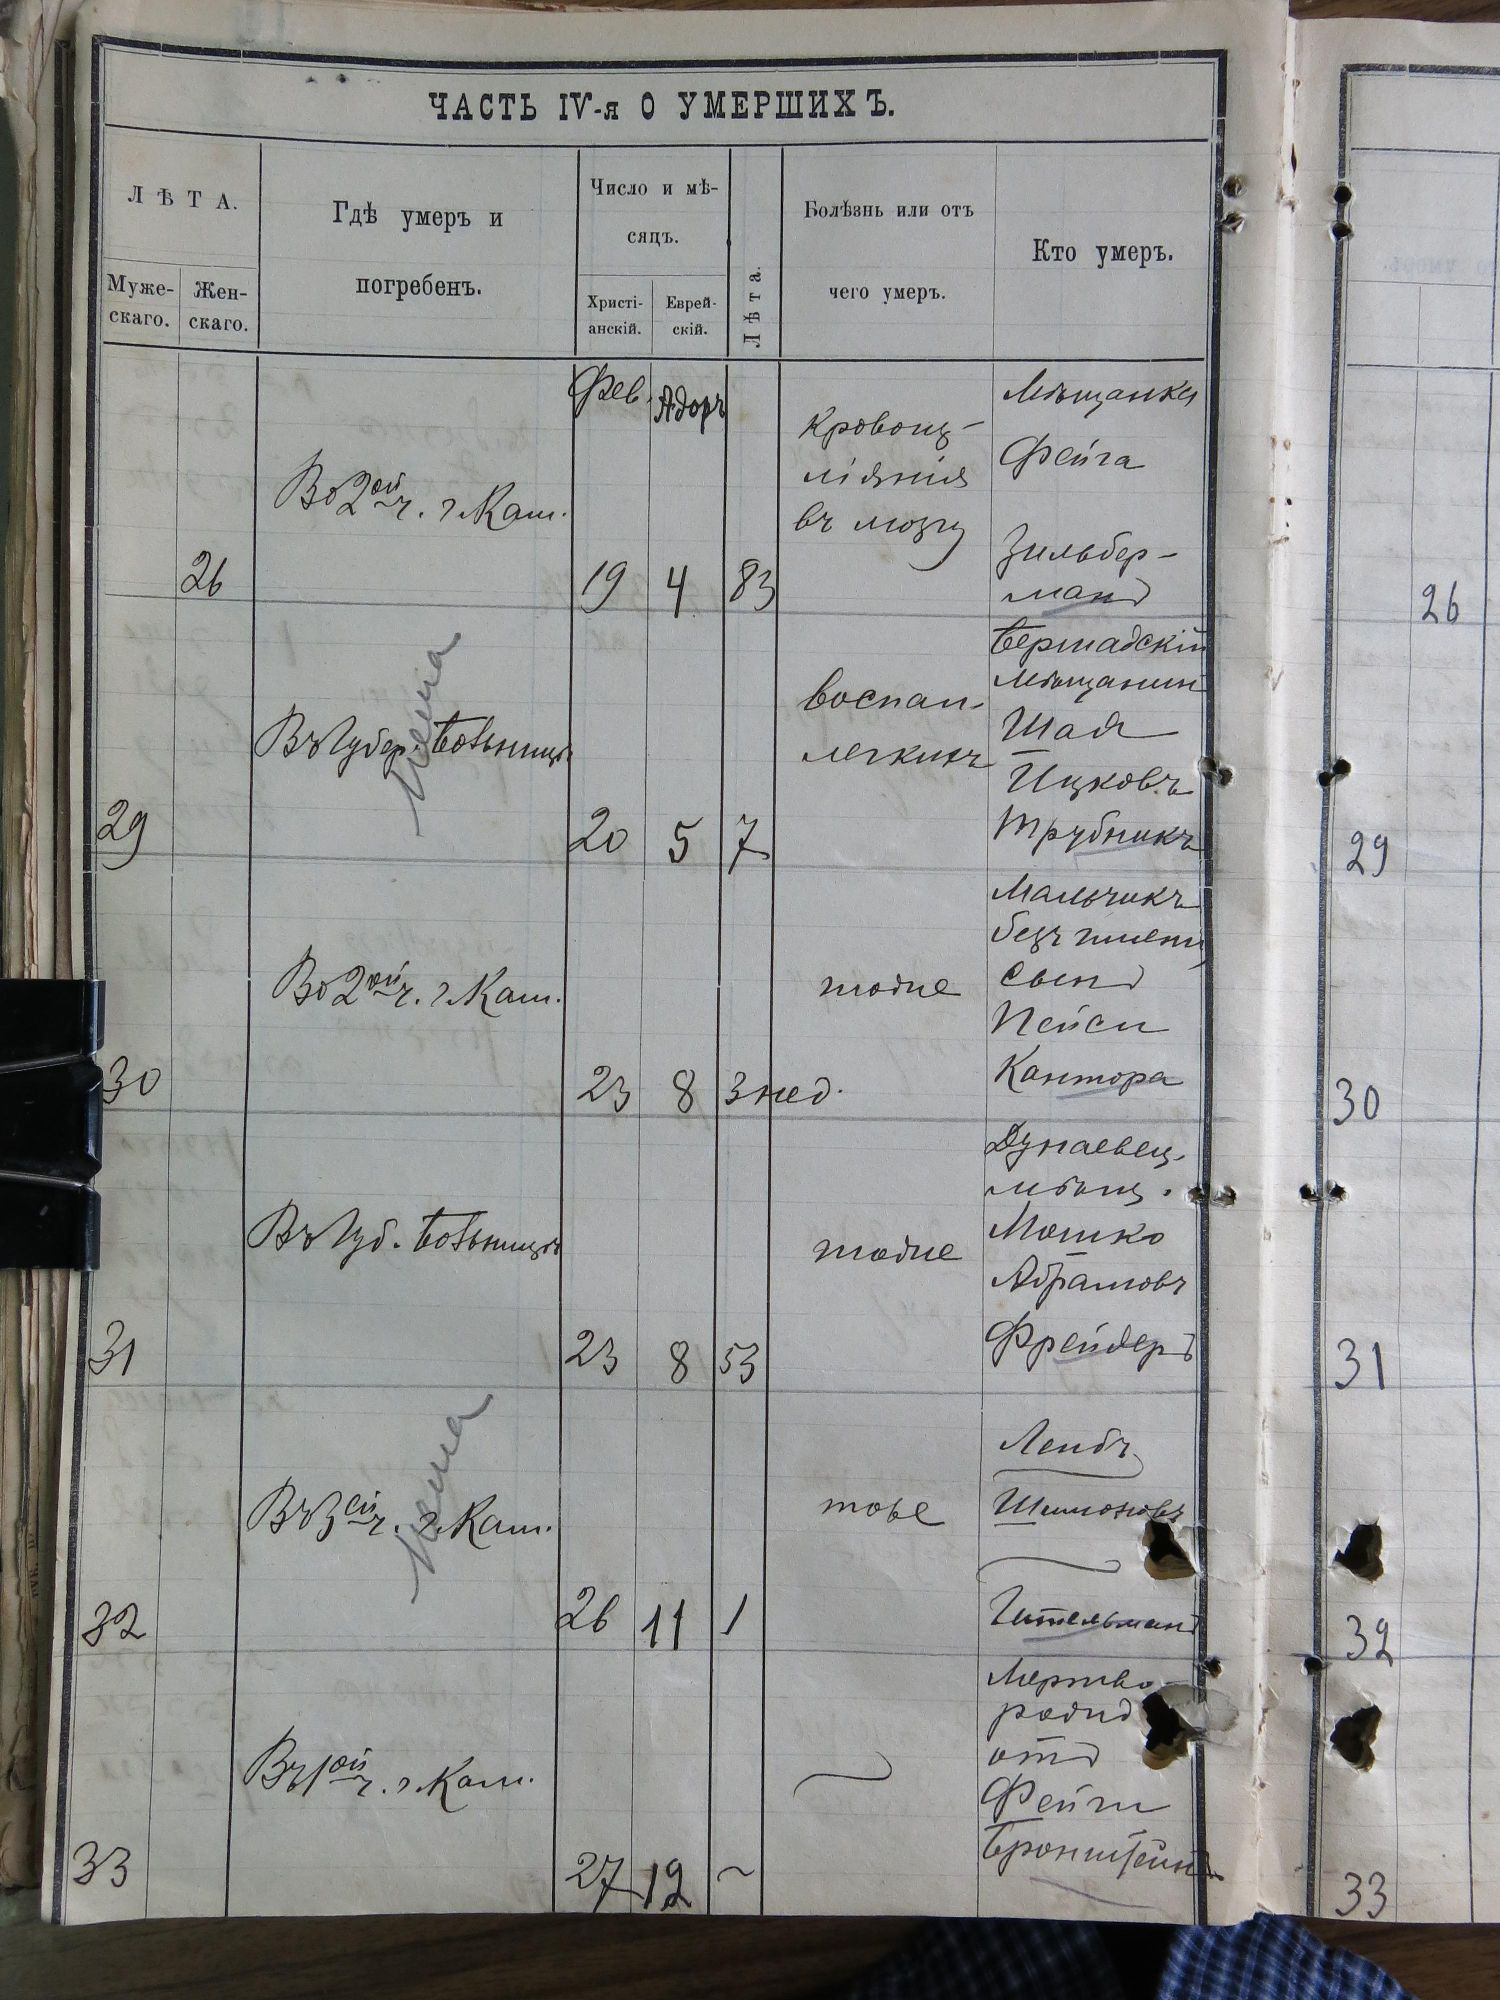 ЧАСТЬ IV-я О УМЕРШИХЪ.
ЛѢТА.
Муже-
скаго.
Жен-
скаго.
Гдѣ умеръ и
погребенъ.
Число и мѣ-
сяцъ.
Христі-
анскій.
Еврей-
скій.
Лѣта.
Болѣзнь или отъ
чего умеръ.
Кто умеръ.
Фев. Адоръ
26
Во 2ой ч. г. Кам.
19 4 83
Кровоиз-
ліянія
въ мозгу
Мѣщанка
Фейга
Зильбер-
манъ
26
29
Въ Губер. Больницѣ
20 5 7
воспал.
легкихъ
Бершадскій
мѣщанинъ
Шая
Ицковъ
Трубникъ
29
30
Во 2ой ч. г. Кам.
23 8 3 нед.
тоже
Мальчикъ
безъ имени
сынъ
Пейси
Кантора
30
31
Въ Губ. Больницѣ
23 8 53
тоже
Дунаевец.
мѣщ.
Мошко
Абрамовъ
Фрейдеръ
31
32
Въ 3ей ч. г. Кам.
26 11 1
тоже
Лейбъ
Шимоновъ
Гительманъ
32
33
Въ 1ой ч. г. Кам.
27 12 ~
Мертво
рожд
отъ
Фейги
Бронштейнъ
33